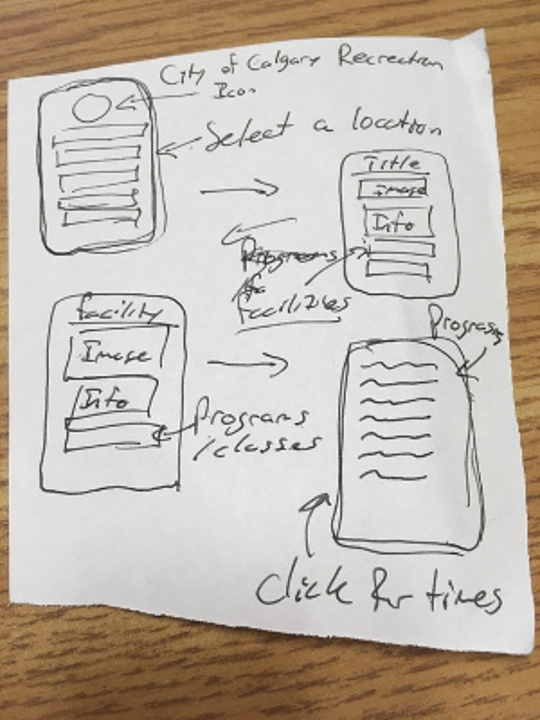 City of Calgary Recreation
Icon
Select a location
Title
Image
Info
Programs
Facilities
facility
Image
Info
Programs
/classes
Programs
Click for times